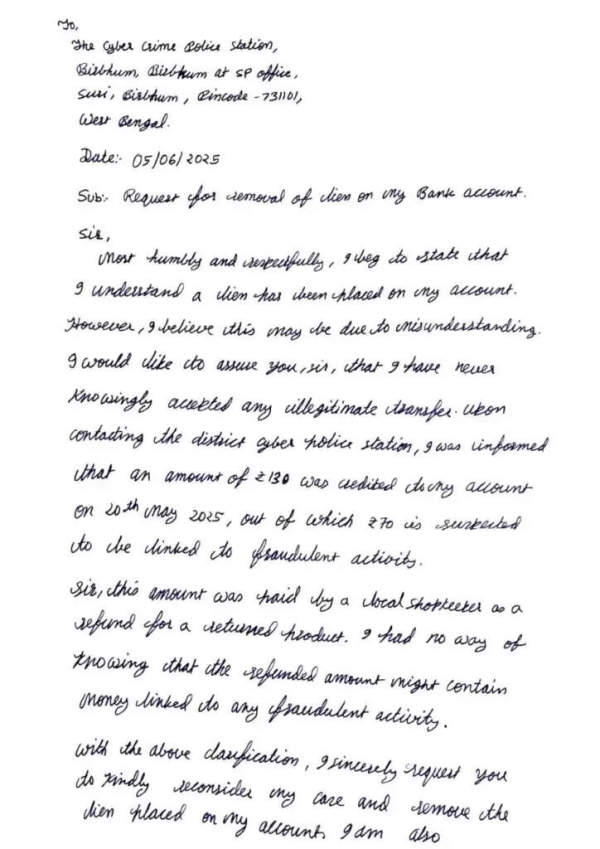 To,
The Cyber Crime Police Station,
Birbhum, Birbhum at SP office,
Suri, Birbhum, Pincode - 731101,
West Bengal.
Date:- 05/06/2025
Sub:- Request for removal of lien on my Bank account.
Sir,
Most humbly and respectfully, I beg to state that
I understand a lien has been placed on my account.
However, I believe this may be due to misunderstanding.
I would like to assure you, sir, that I have never
knowingly accepted any illegitimate transfer. Upon
contacting the district cyber police station, I was informed
that an amount of ₹130 was credited to my account
on 20th May 2025, out of which ₹70 is suspected
to be linked to fraudulent activity.
Sir, this amount was paid by a local shopkeeper as a
refund for a returned product. I had no way of
knowing that the refunded amount might contain
money linked to any fraudulent activity.
With the above clarification, I sincerely request you
to kindly reconsider my case and remove the
lien placed on my account. I am also